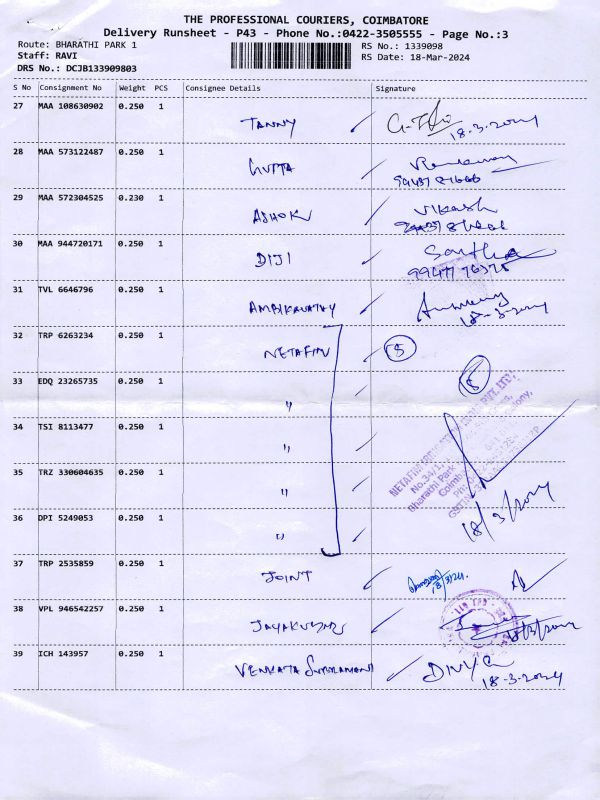 THE PROFESSIONAL COURIERS, COIMBATORE
Delivery Runsheet - P43 - Phone No.:0422-3505555 - Page No.:3
Route: BHARATHI PARK 1 RS No.: 1339098
Staff: RAVI RS Date: 18-Mar-2024
DRS No.: DCJB133909803
S No Consignment No Weight PCS Consignee Details Signature
27 MAA 108630902 0.250 1 TANNY 18-3-2024
28 MAA 573122487 0.250 1 GUPTA
29 MAA 572304525 0.230 1 ASHOK Vikash
30 MAA 944720171 0.250 1 DIJI
31 TVL 6646796 0.250 1 AMBIKAVATHY 18-3-2024
32 TRP 6263234 0.250 1 NETAFIM 5
33 EDQ 23265735 0.250 1 " 5
34 TSI 8113477 0.250 1 "
35 TRZ 330604635 0.250 1 "
36 DPI 5249053 0.250 1 " 18/3/2024
37 TRP 2535859 0.250 1 JOINT 18/3/24
38 VPL 946542257 0.250 1 JAYAKUMAR 18/3/2024
39 ICH 143957 0.250 1 VENKATA SUBRAMANI DIVYA
18-3-2024